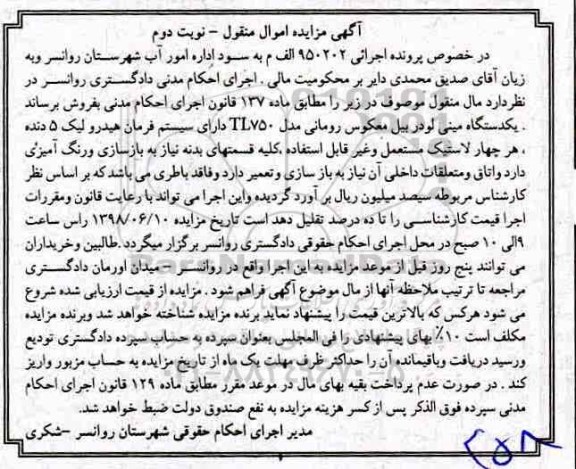 آگهی مزایده اموال منقول - نوبت دوم
در خصوص پرونده اجرائی ۹۵۰۲۰۲ الف م به سود اداره امور آب شهرستان روانسر وبه
زیان آقای صدیق محمدی دایر بر محکومیت مالی . اجرای احکام مدنی دادگستری روانسر در
نظردارد مال منقول موصوف در زیر را مطابق ماده ۱۳۷ قانون اجرای احکام مدنی بفروش برساند
. یکدستگاه مینی لودر بیل معکوس رومانی مدل TL۷۵۰ دارای سیستم فرمان هیدرو لیک ۵ دنده
، هر چهار لاستیک مستعمل وغیر قابل استفاده ،کلیه قسمتهای بدنه نیاز به بازسازی ورنگ آمیزی
دارد واتاق ومتعلقات داخلی آن نیاز به باز سازی وتعمیر دارد وفاقد باطری می باشد که بر اساس نظر
کارشناس مربوطه سیصد میلیون ریال بر آورد گردیده واین اجرا می تواند با رعایت قانون ومقررات
اجرا قیمت کارشناسی را تا ده درصد تقلیل دهد است تاریخ مزایده ۱۳۹۸/۰۶/۱۰ راس ساعت
۹الی ۱۰ صبح در محل اجرای احکام حقوقی دادگستری روانسر برگزار میگردد .طالبین وخریداران
می توانند پنج روز قبل از موعد مزایده به این اجرا واقع در روانسر - میدان اورمان دادگستری
مراجعه تا ترتیب ملاحظه آنها از مال موضوع آگهی فراهم شود . مزایده از قیمت ارزیابی شده شروع
می شود هرکس که بالاترین قیمت را پیشنهاد نماید برنده مزایده شناخته خواهد شد وبرنده مزایده
مکلف است ۱۰٪ بهای پیشنهادی را فی المجلس بعنوان سپرده به حساب سپرده دادگستری تودیع
ورسید دریافت وباقیمانده آن را حداکثر ظرف مهلت یک ماه از تاریخ مزایده به حساب مزبور واریز
کند . در صورت عدم پرداخت بقیه بهای مال در موعد مقرر مطابق ماده ۱۲۹ قانون اجرای احکام
مدنی سپرده فوق الذکر پس از کسر هزینه مزایده به نفع صندوق دولت ضبط خواهد شد.
مدیر اجرای احکام حقوقی شهرستان روانسر -شکری
۲۵۸